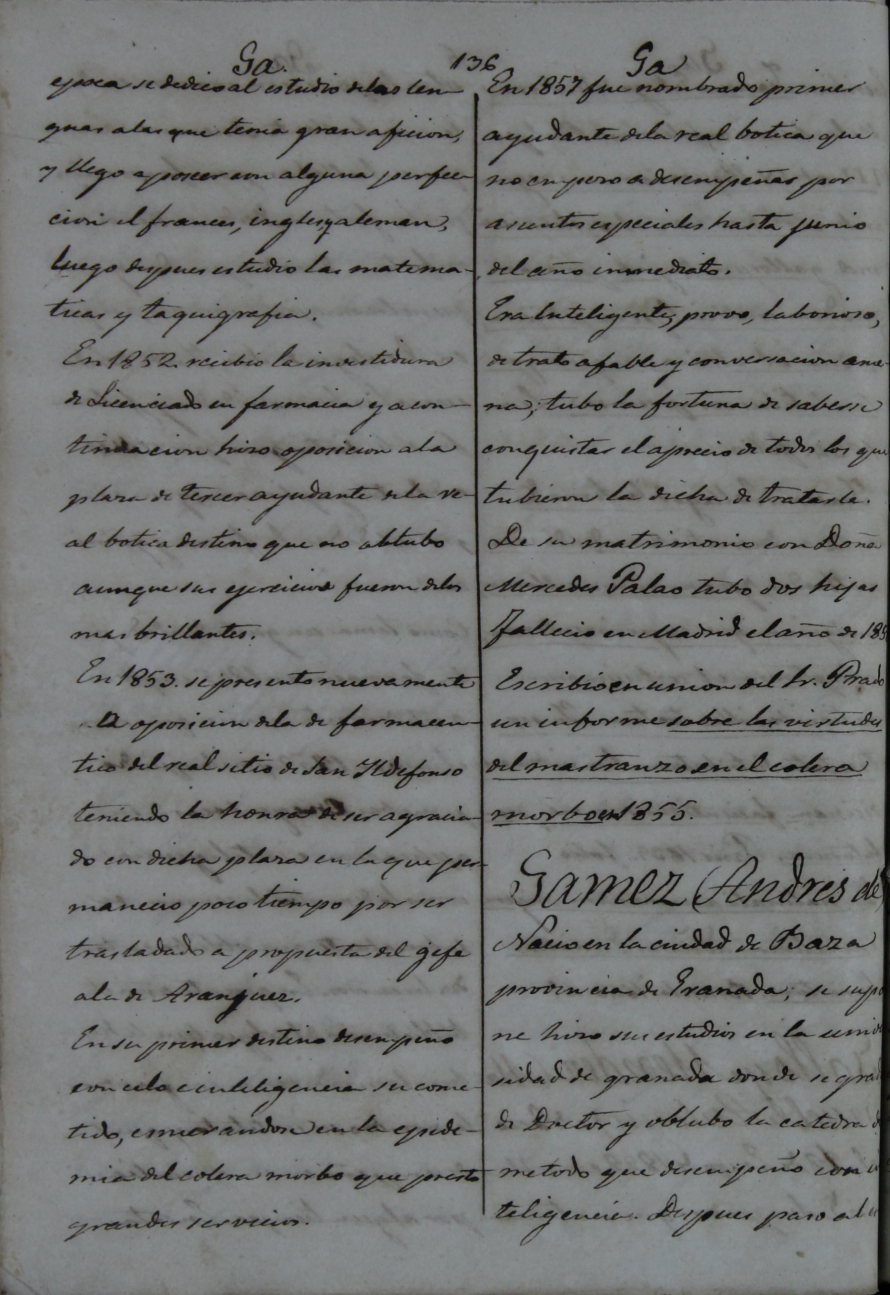 Ga. 136 Ga
epoca se dedico al estudio de las len-
guas a las que tenia gran aficion,
y llego a poseer con alguna perfec-
cion el frances, ingles y aleman,
luego despues estudio las matema-
ticas y taquigrafia.
En 1852 recibio la investidura
de Licenciado en farmacia y a con-
tinuacion hizo oposicion a la
plaza de tercer ayudante de la re-
al botica destino que no obtubo
aunque sus ejercicios fueron de los
mas brillantes.
En 1853. se presento nuevamente
a oposicion de la de farmaceu-
tico del real sitio de San Yldefonso
teniendo la honra de ser agracia-
do con dicha plaza en la que per-
manecio poco tiempo por ser
trasladado a propuesta del gefe
a la de Aranjuez.
En su primer destino desempeño
con celo e inteligencia su come-
tido, esmerandose en la epide-
mia del colera morbo que presto
grandes servicios.
En 1857 fue nombrado primer
ayudante de la real botica que
no empezo a desempeñar por
asuntos especiales hasta junio
del año inmediato.
Era Inteligente, provo, laborioso,
de trato afable y conversacion ame-
na; tubo la fortuna de saberse
conquistar el aprecio de todos los que
tubieron la dicha de tratarle.
De su matrimonio con Doña
Mercedes Palao tubo dos hijas
Fallecio en Madrid el año de 185
Escribio en union del Sr. Prado
un informe sobre las virtudes
del mastranzo en el colera
morbo en 1855.
Gamez (Andres de)
Nacio en la ciudad de Baza
provincia de Granada; se supo
ne hizo sus estudios en la univer
sidad de granada donde se grad
de Doctor y obtubo la catedra d
metodo que desempeño con in
teligencia. Despues paso a la